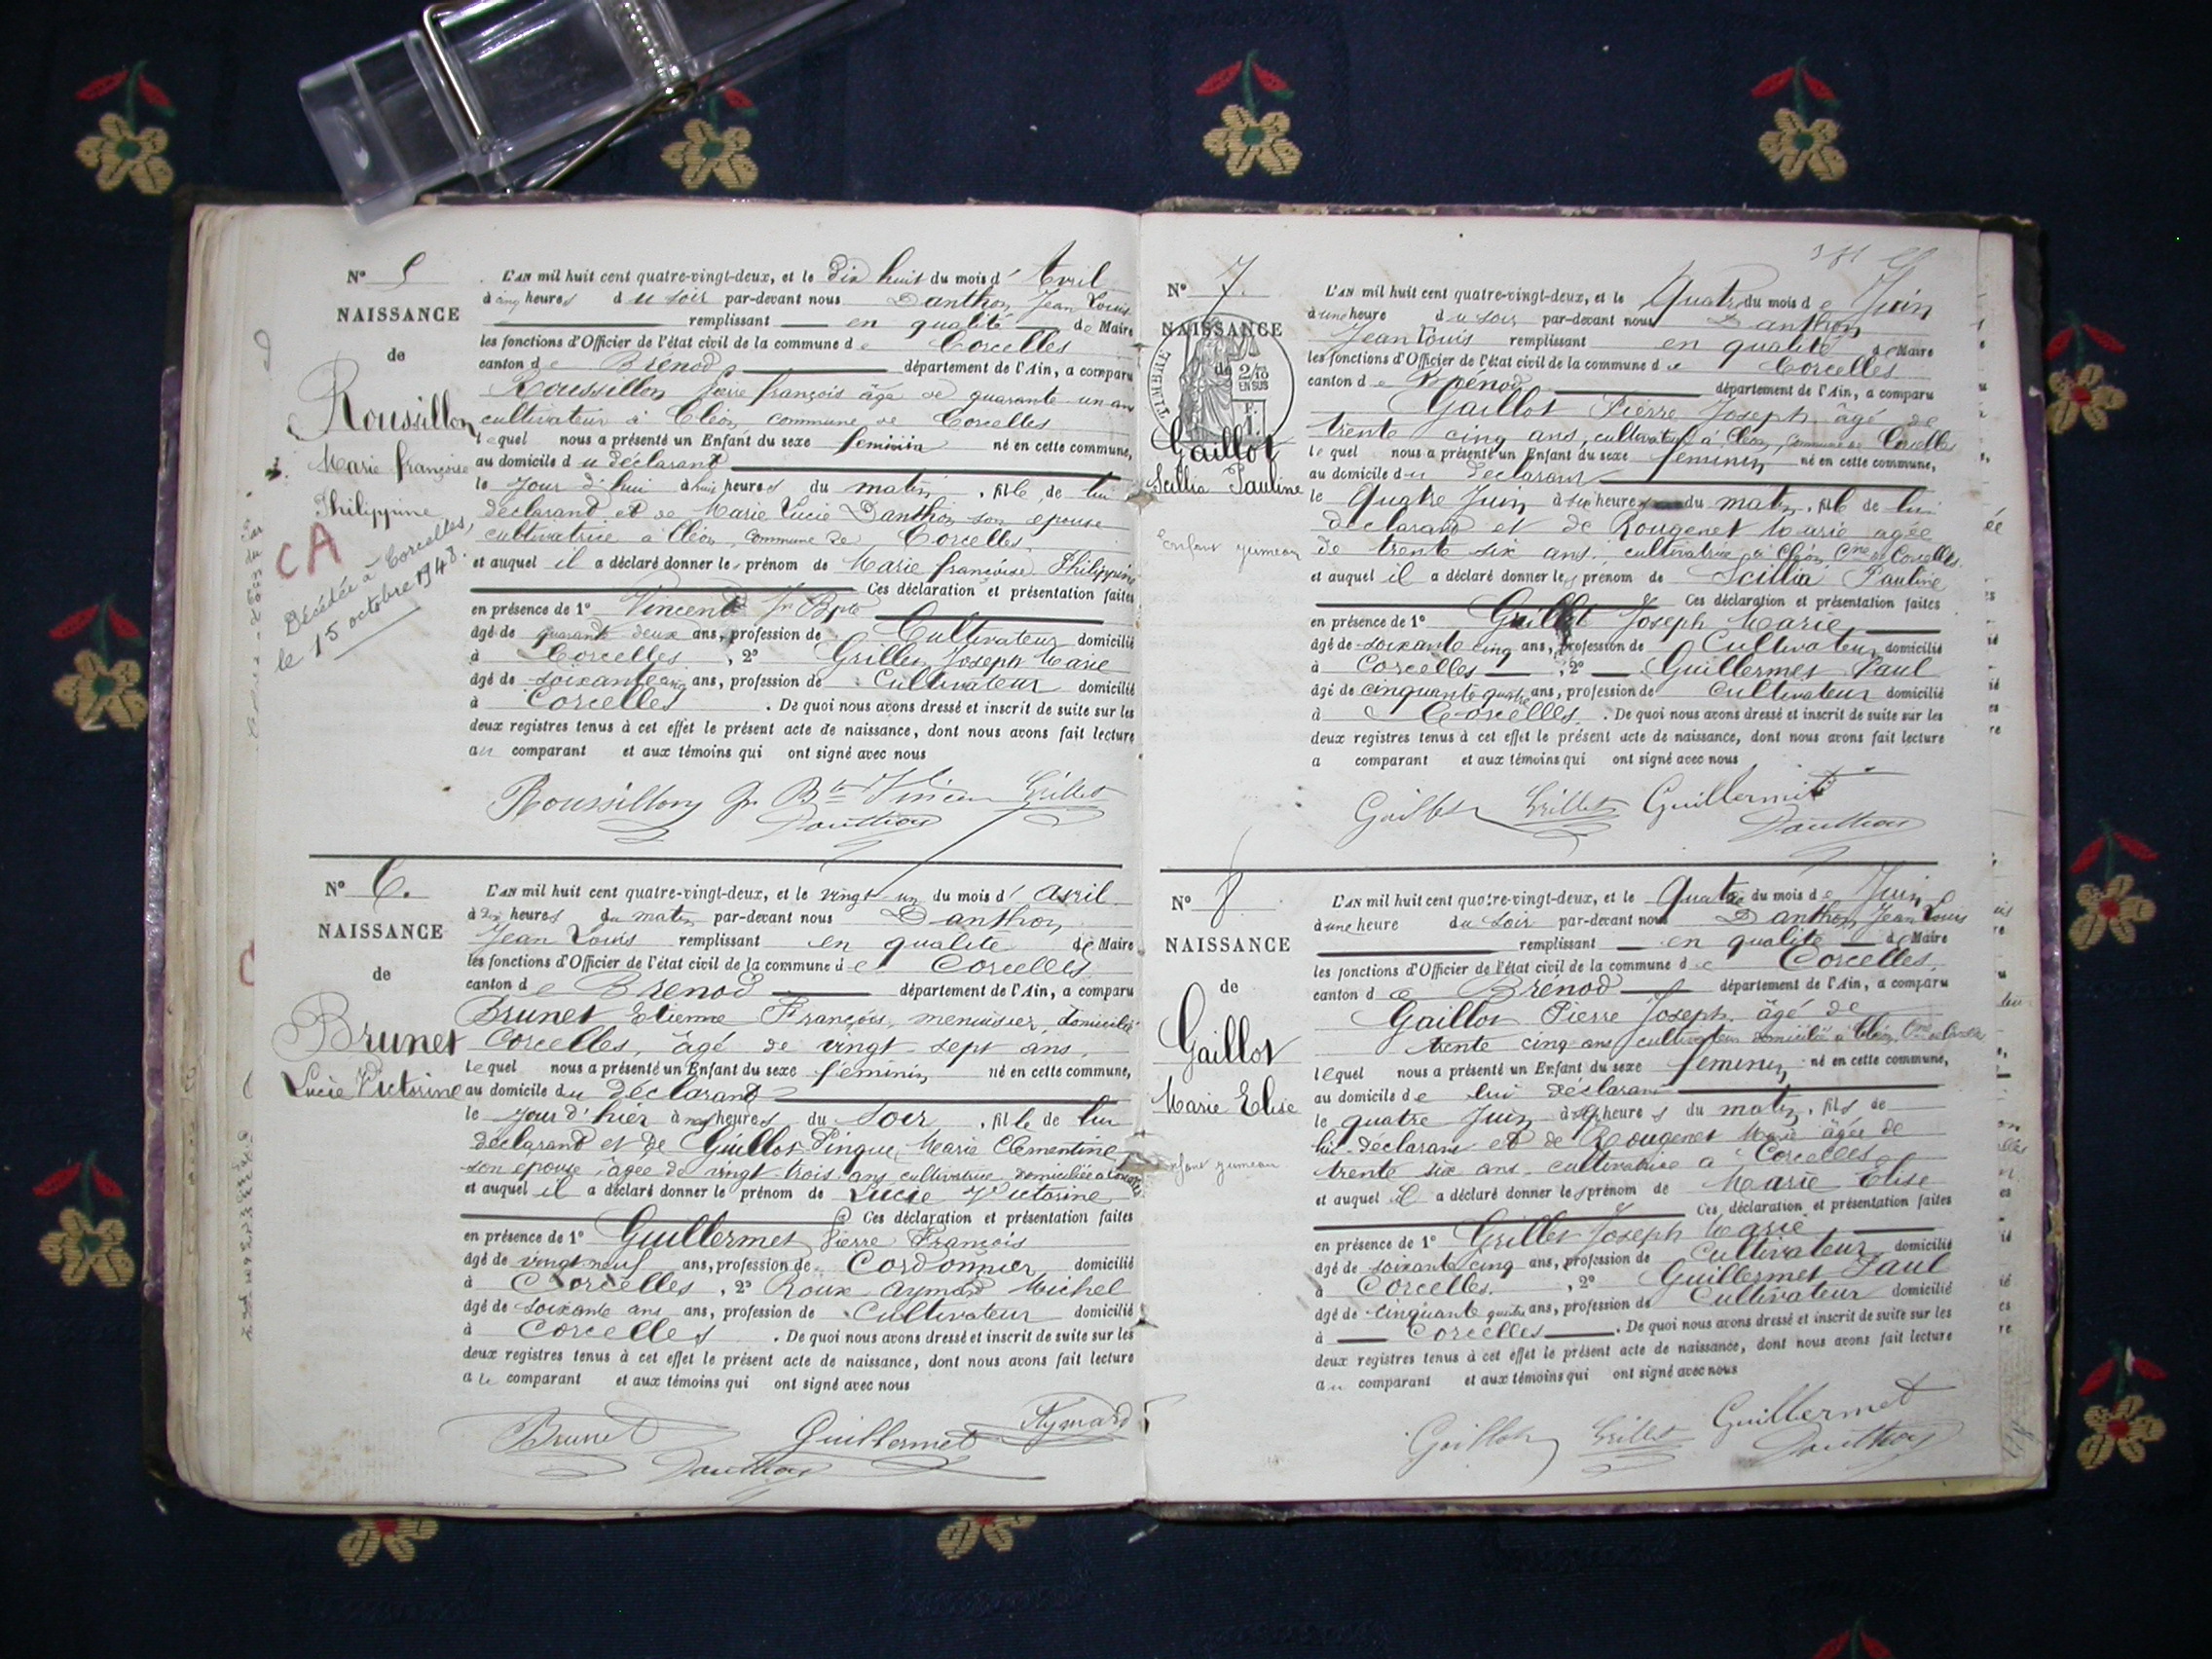 N° 5
NAISSANCE
de
Roussillon
Marie françoise
Philippine
CA
Décédée à Corcelles,
le 15 octobre 1948.
L'AN mil huit cent quatre-vingt-deux, et le dix huit du mois d' Avril
à cinq heures du soir par-devant nous Danthon Jean Louis
remplissant en qualité de Maire
les fonctions d'Officier de l'état civil de la commune de Corcelles
canton de Brénod département de l'Ain, a comparu
Roussillon françois âgé de quarante un ans
cultivateur à Cléon commune de Corcelles
lequel nous a présenté un Enfant du sexe feminin né en cette commune,
au domicile du déclarant
le jour d'hui à heures du matin, fille de lui
déclarant et de Marie Lucie Danthon son epouse
cultivatrice à Cléon, commune de Corcelles.
et auquel il a déclaré donner les prénom de Marie françoise Philippine
Ces déclaration et présentation faites
en présence de 1° Vincent Jn Bpte
âgé de quarante deux ans, profession de Cultivateur domicilié
à Corcelles, 2° Grillet Joseph Marie
âgé de soixante cinq ans, profession de Cultivateur domicilié
à Corcelles. De quoi nous avons dressé et inscrit de suite sur les
deux registres tenus à cet effet le présent acte de naissance, dont nous avons fait lecture
au comparant et aux témoins qui ont signé avec nous
Roussillon Jn Bte Vincent Grillet
Danthon
N° 6.
NAISSANCE
de
Brunet
Lucie Victorine
L'AN mil huit cent quatre-vingt-deux, et le vingt un du mois d' avril
à dix heures du matin par-devant nous Danthon
Jean Louis remplissant en qualité de Maire
les fonctions d'Officier de l'état civil de la commune de Corcelles
canton de Brenod département de l'Ain, a comparu
Brunet Etienne François, menuisier, domicilié
Corcelles, âgé de vingt-sept ans.
lequel nous a présenté un Enfant du sexe féminin né en cette commune,
au domicile du déclarant
le jour d'hier à neuf heures du soir, fille de lui
déclarant et de Guillot Pingue, Marie Clementine
son epouse, âgée de vingt-trois ans, cultivatrice, domiciliée à Corcelles
et auquel il a déclaré donner le prénom de Lucie Victorine
Ces déclaration et présentation faites
en présence de 1° Guillermet Pierre François
âgé de vingt neuf ans, profession de Cordonnier domicilié
à Corcelles, 2° Roux aymard Michel
âgé de soixante ans ans, profession de Cultivateur domicilié
à Corcelles. De quoi nous avons dressé et inscrit de suite sur les
deux registres tenus à cet effet le présent acte de naissance, dont nous avons fait lecture
au comparant et aux témoins qui ont signé avec nous
Brunet Guillermet Aymard
Danthon
N° 7.
NAISSANCE
de
TIMBRE
2/10
EN SUS
Gaillot
Scillia Pauline
Enfant jumeau
L'AN mil huit cent quatre-vingt-deux, et le Quatre du mois de Juin
à une heure du soir par-devant nous Danthon
Jean Louis remplissant en qualité de Maire
les fonctions d'Officier de l'état civil de la commune de Corcelles
canton de Brénod département de l'Ain, a comparu
Gaillot Pierre Joseph âgé de
trente cinq ans, cultivateur à Cléon, commune de Corcelles
lequel nous a présenté un Enfant du sexe feminin né en cette commune,
au domicile du déclarant
le Quatre Juin à heures du matin, fille de lui
declarant et de Rougenet Marie agée
de trente six ans, cultivatrice à Cléon, Cne de Corcelles.
et auquel il a déclaré donner les prénom de Scillia Pauline
Ces déclaration et présentation faites
en présence de 1° Grillet Joseph Marie
âgé de soixante cinq ans, profession de Cultivateur domicilié
à Corcelles, 2° Guillermet Paul
âgé de cinquante quatre ans, profession de Cultivateur domicilié
à Corcelles. De quoi nous avons dressé et inscrit de suite sur les
deux registres tenus à cet effet le présent acte de naissance, dont nous avons fait lecture
a comparant et aux témoins qui ont signé avec nous
Gaillot Grillet Guillermet
Danthon
N° 8
NAISSANCE
de
Gaillot
Marie Elise
Enfant jumeau
L'AN mil huit cent quatre-vingt-deux, et le Quatre du mois de Juin
à une heure du soir par-devant nous Danthon Jean Louis
remplissant en qualité de Maire
les fonctions d'Officier de l'état civil de la commune de Corcelles.
canton de Brenod département de l'Ain, a comparu
Gaillot Pierre Joseph âgé de
trente cinq ans cultivateur domicilié à Cléon, Cne de Corcelles
lequel nous a présenté un Enfant du sexe feminin né en cette commune,
au domicile de lui déclarant
le quatre Juin à heures du matin, fils de
lui déclarant et de Rougenet Marie âgée de
trente six ans cultivatrice à Corcelles
et auquel il a déclaré donner les prénom de Marie Elise
Ces déclaration et présentation faites
en présence de 1° Grillet Joseph Marie
âgé de soixante cinq ans, profession de Cultivateur domicilié
à Corcelles, 2° Guillermet Paul
âgé de cinquante quatre ans, profession de Cultivateur domicilié
à Corcelles. De quoi nous avons dressé et inscrit de suite sur les
deux registres tenus à cet effet le présent acte de naissance, dont nous avons fait lecture
au comparant et aux témoins qui ont signé avec nous
Gaillot Grillet Guillermet
Danthon